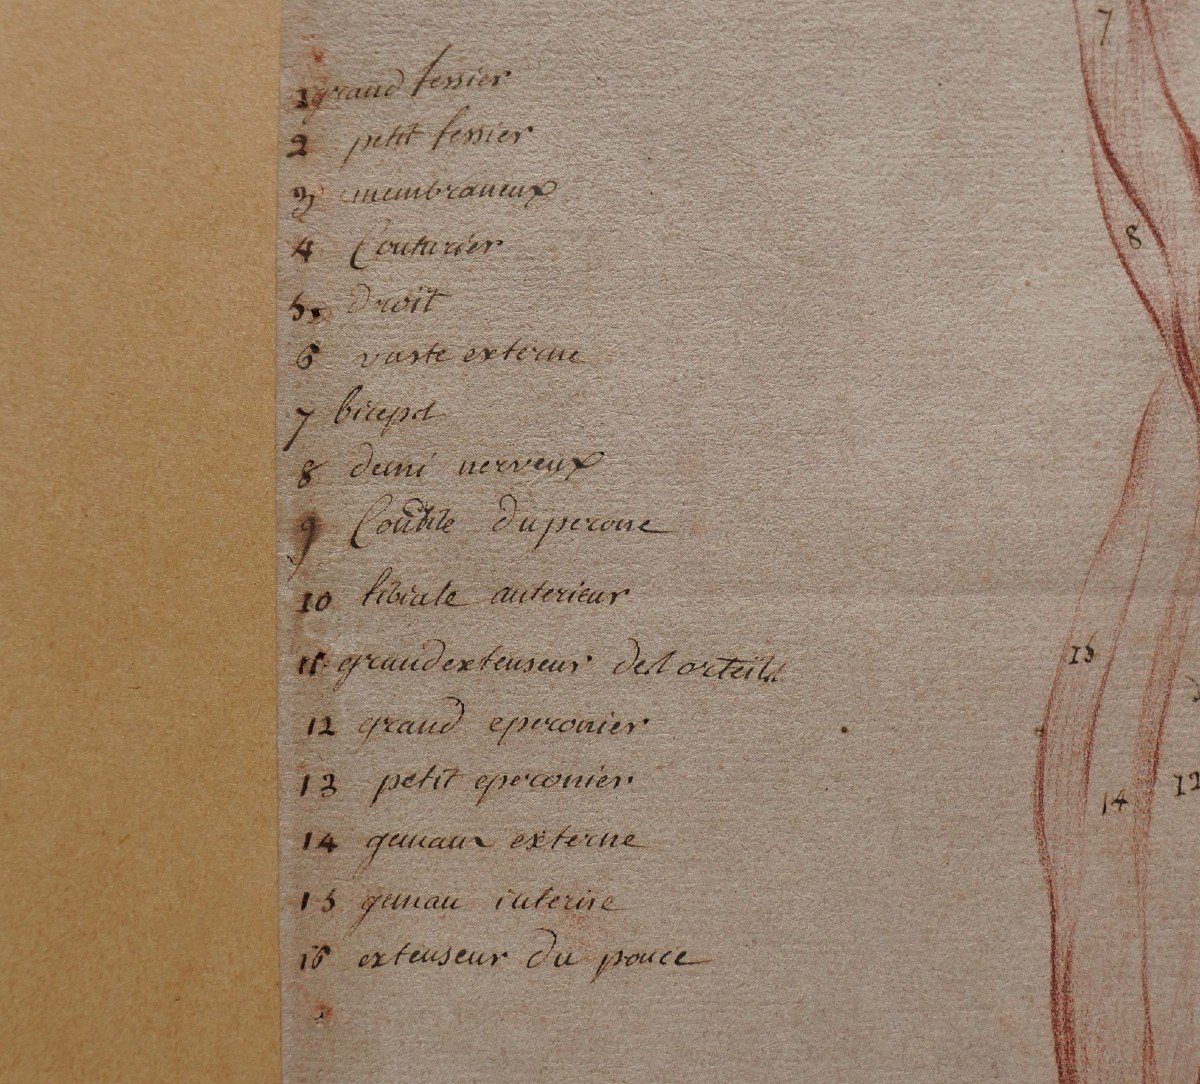 7
1 grand fessier
2 petit fessier
3 membraneux
8
4 Couturier
5. droit
6 vaste externe
7 biceps
8 demi nerveux
9 du perone
10 tibiale anterieur
15
11 grand extenseur des orteils
12 grand eperonier
13 petit eperonier
12
14
14 gemau externe
15 gemau interne
16 extenseur du pouce